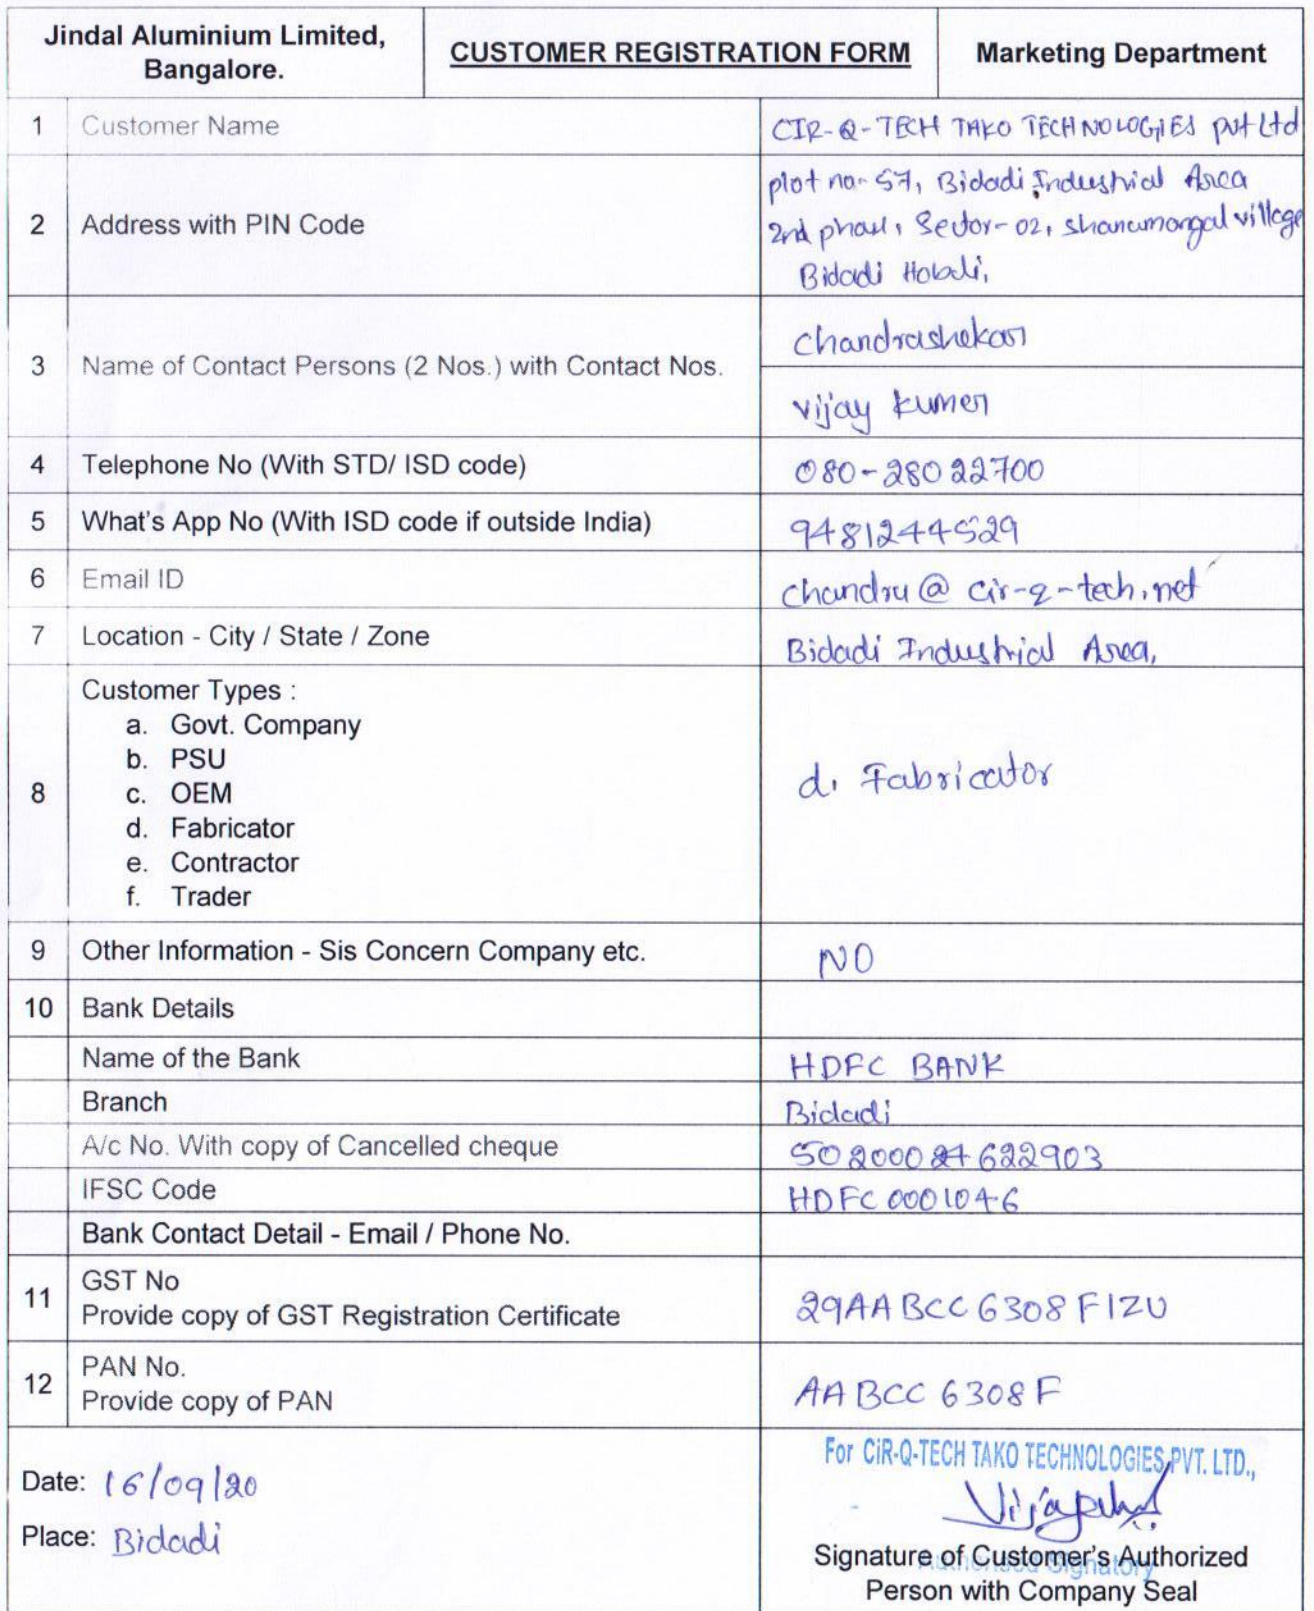 Jindal Aluminium Limited,
Bangalore.
CUSTOMER REGISTRATION FORM
Marketing Department
1 Customer Name CIR-Q-TECH TAKO TECHNOLOGIES pvt Ltd
2 Address with PIN Code
plot no- 57, Bidadi Industrial Area
2nd phase, Sector-02, shanumangal village
Bidadi Hobali,
3 Name of Contact Persons (2 Nos.) with Contact Nos.
Chandrashekar
vijay kumer
4 Telephone No (With STD/ ISD code) 080-28022700
5 What's App No (With ISD code if outside India) 9481244529
6 Email ID chandru@cir-q-tech.net
7 Location - City / State / Zone Bidadi Industrial Area,
8 Customer Types :
a. Govt. Company
b. PSU
c. OEM
d. Fabricator
e. Contractor
f. Trader
d. Fabricator
9 Other Information - Sis Concern Company etc. NO
10 Bank Details
Name of the Bank HDFC BANK
Branch Bidadi
A/c No. With copy of Cancelled cheque
IFSC Code HDFC0001046
Bank Contact Detail - Email / Phone No.
11 GST No
Provide copy of GST Registration Certificate 29AABCC6308F1ZU
12 PAN No.
Provide copy of PAN AABCC6308F
Date: 16/09/20
Place: Bidadi
For CiR-Q-TECH TAKO TECHNOLOGIES PVT. LTD.,
Authorised Signatory
Signature of Customer's Authorized
Person with Company Seal